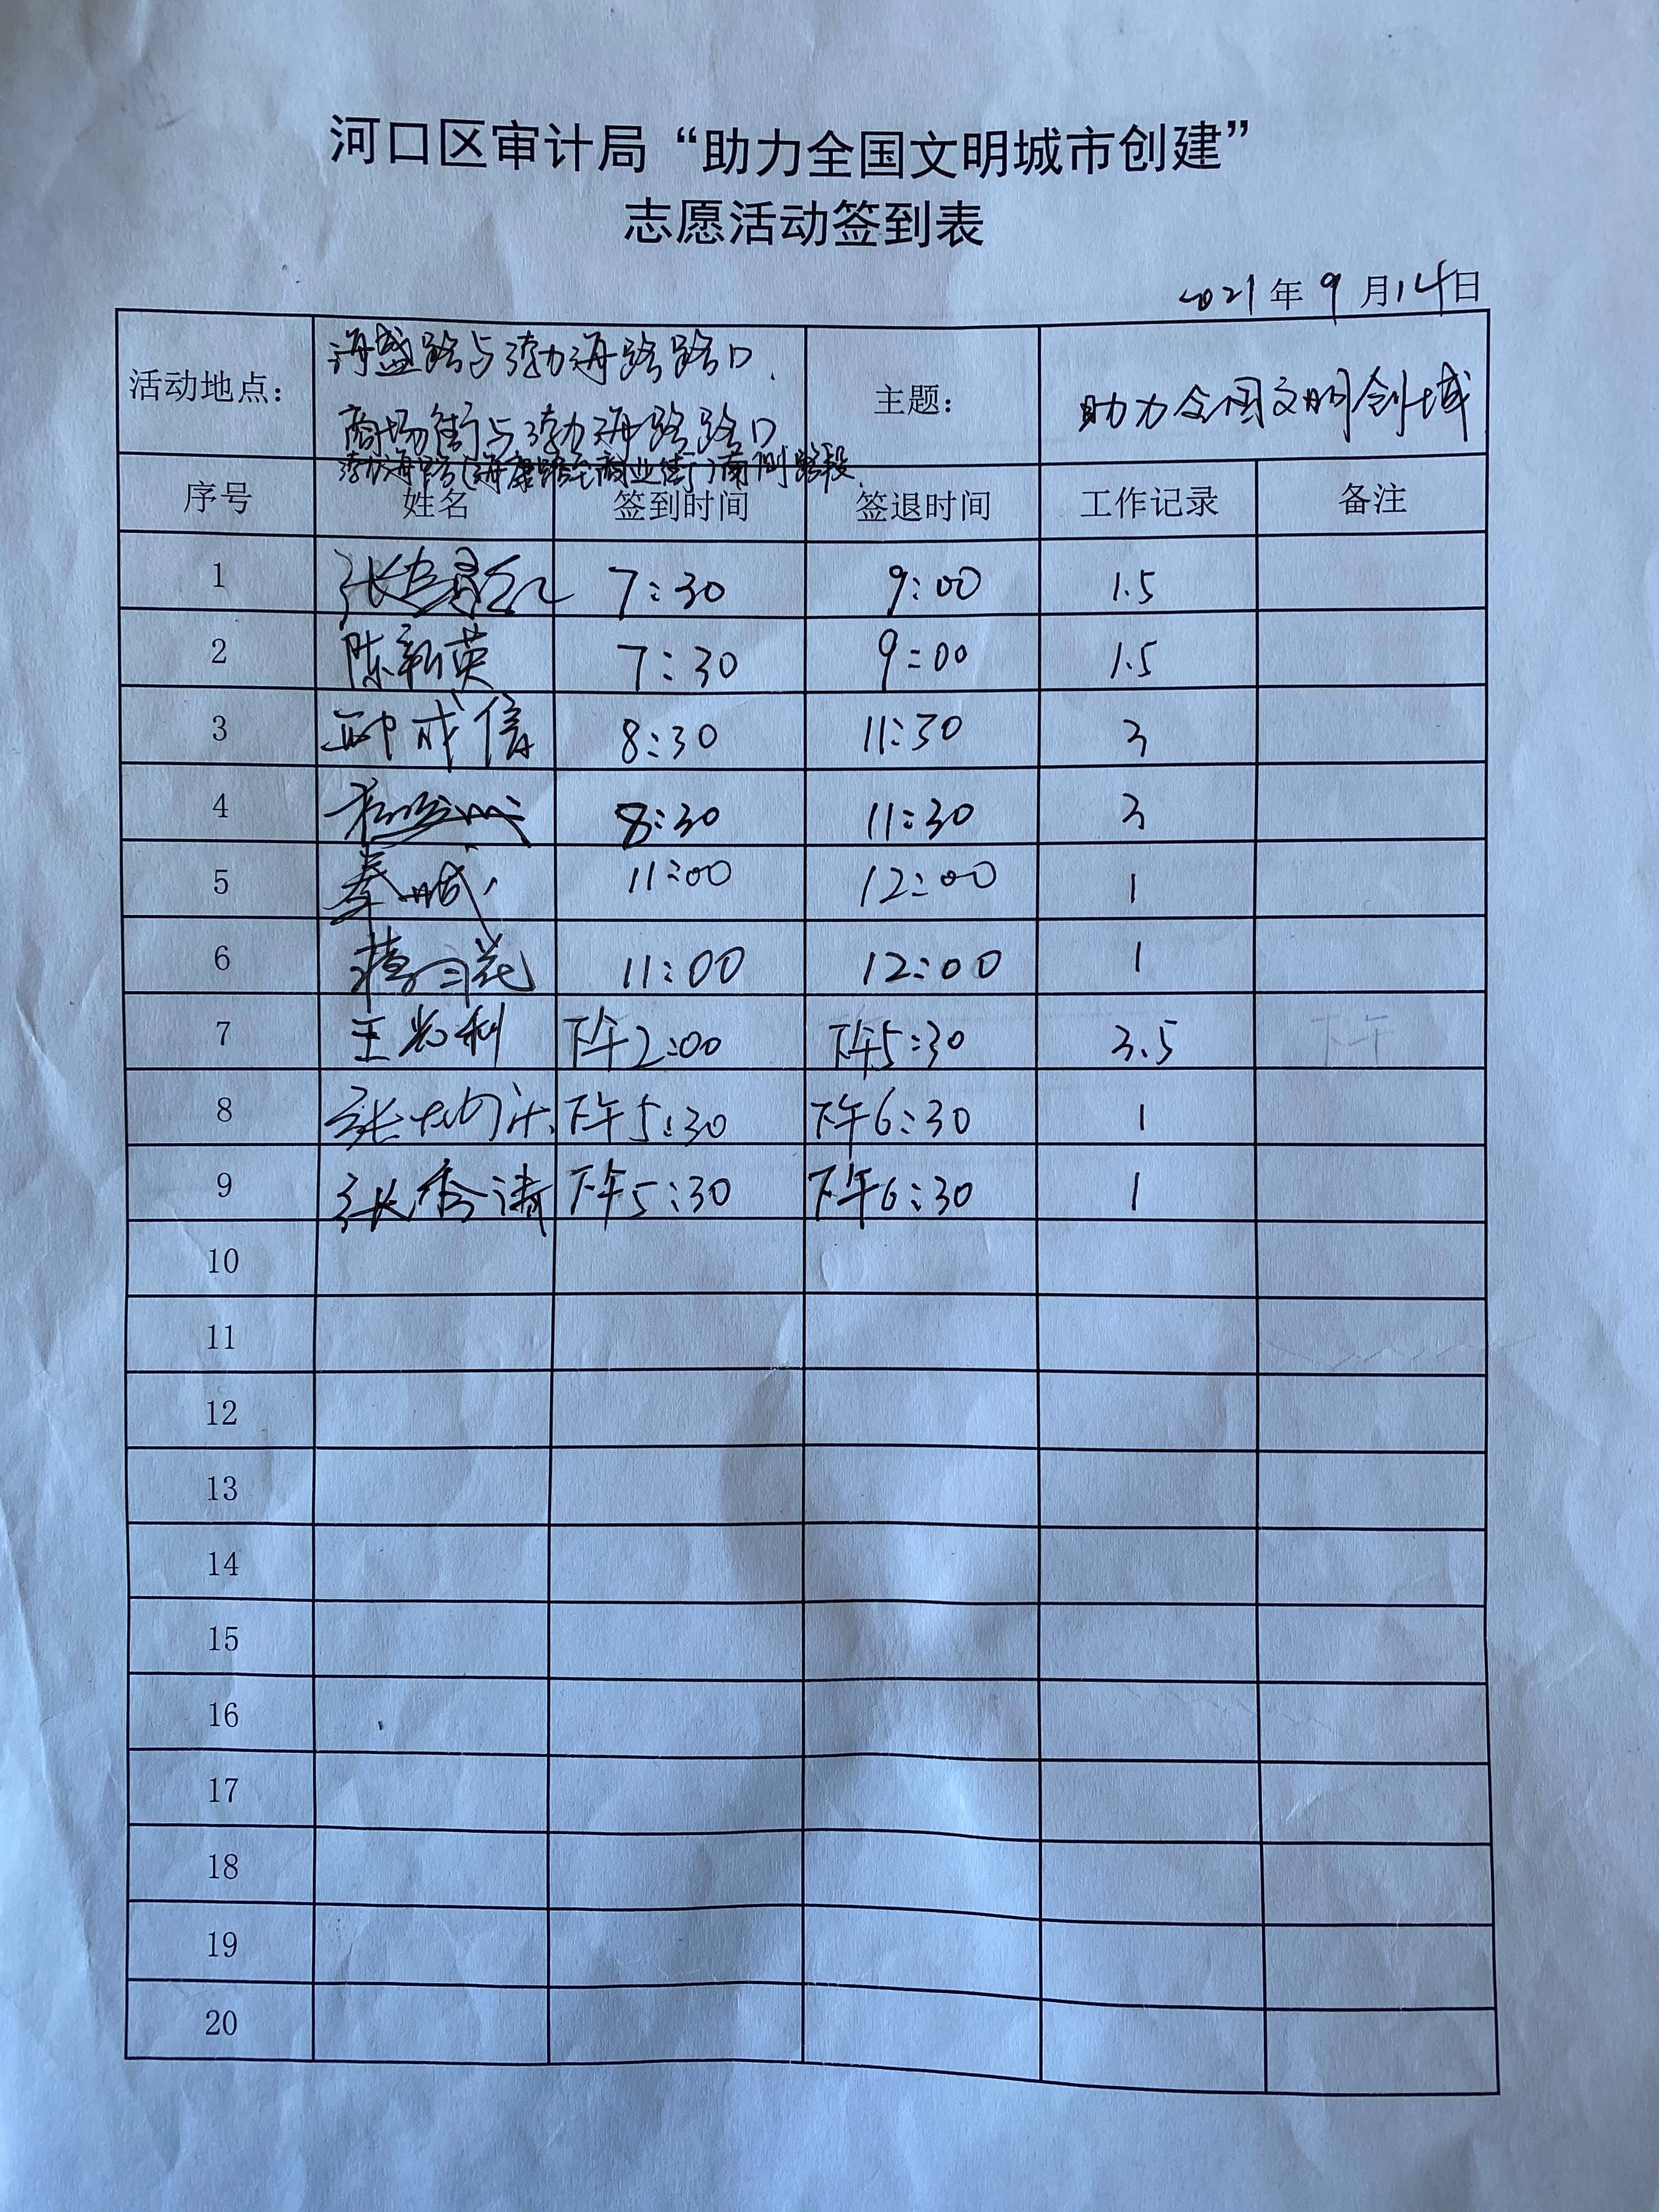 河口区审计局“助力全国文明城市创建”
志愿活动签到表
2021年9月14日
活动地点： 海盛路与渤海路路口、 主题： 助力全国文明创城
商场街与渤海路路口
渤海路(海康路至商业街)南侧路段
序号 姓名 签到时间 签退时间 工作记录 备注
1 7:30 9:00 1.5
2 陈新英 7:30 9:00 1.5
3 8:30 11:30 3
4 8:30 11:30 3
5 秦城 11:00 12:00 1
6 11:00 12:00 1
7 王岩利 下午2:00 下午5:30 3.5 下午
8 下午5:30 下午6:30 1
9 张秀涛 下午5:30 下午6:30 1
10
11
12
13
14
15
16
17
18
19
20